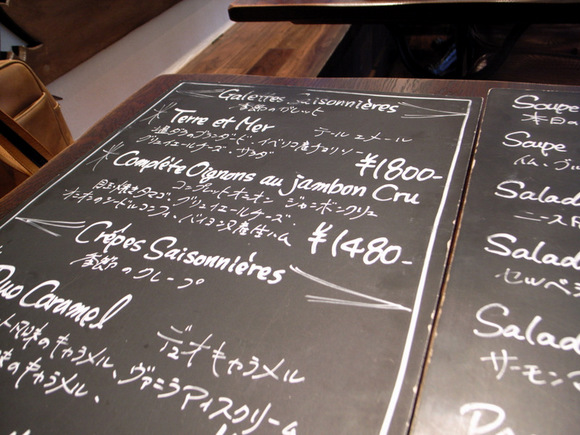 Galettes Saisonnières
季節のガレット
Terre et Mer
テール エ メール
グリュイエールチーズ・サラダ
¥1800-
Complète Oignons au jambon Cru
コンプレットオニオン ジャンボンクリュ
目玉焼きタマゴ、グリュイエールチーズ、
オニオンシードルコンフィ、バイヨンヌ産生ハム
¥1480-
Crêpes Saisonnières
季節のクレープ
Duo Caramel
デュオキャラメル
味のキャラメル、ヴァニラアイスクリーム
味のキャラメル、
Soupe
本日の
Soupe
Salad
ニース
Salad
セルベラ
Salad
サーモン